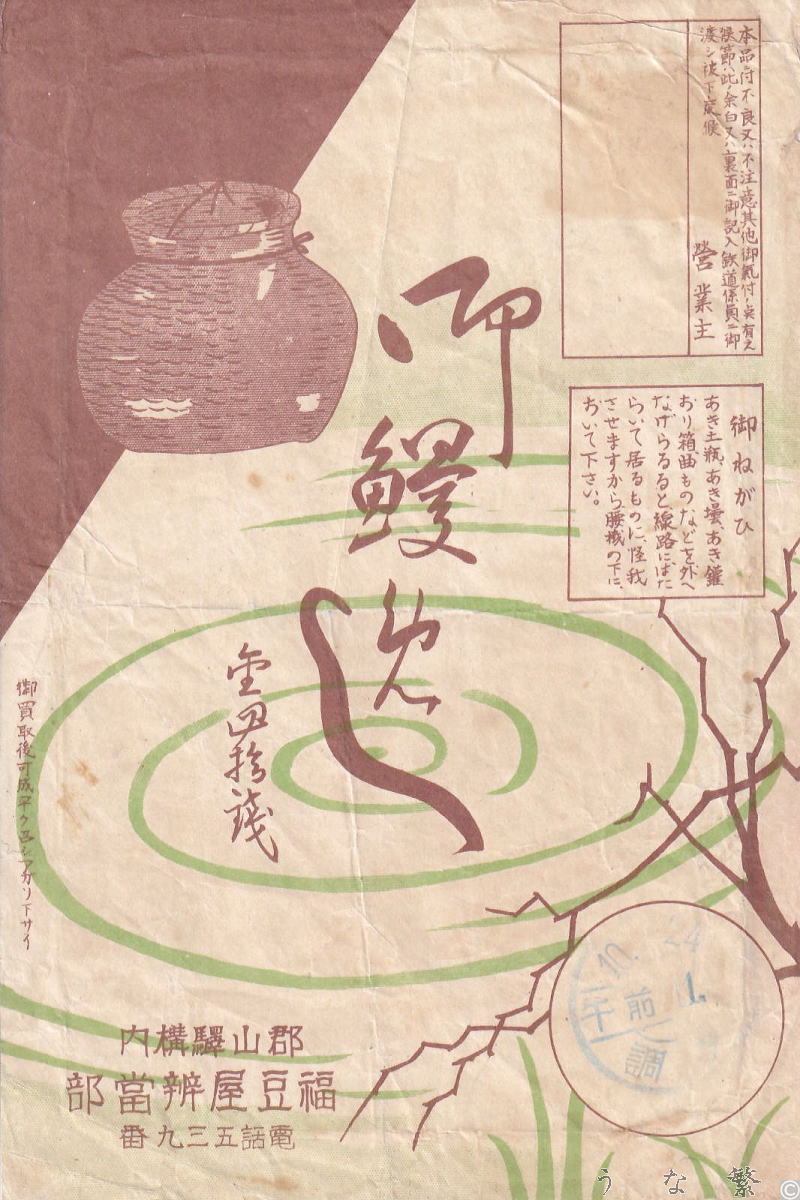 本品ニ付不良又ハ不注意其他御氣付ノ点有之
候節ハ此ノ余白又ハ裏面ニ御記入鉄道係員ニ御
渡シ被下度候
營業主
御ねがひ
あき土瓶、あき壜、あき鑵
おり箱、曲ものなどを外へ
なげらるゝと線路にはた
らいて居るものに、怪我
させますから、腰掛の下に、
おいて下さい。
御鰻めし
金四拾錢
御買取後可成早ク召シアガリ下サイ
郡山驛構内
福豆屋辨當部
電話五三九番
10. 24
午前 1.
調
うな繁
©